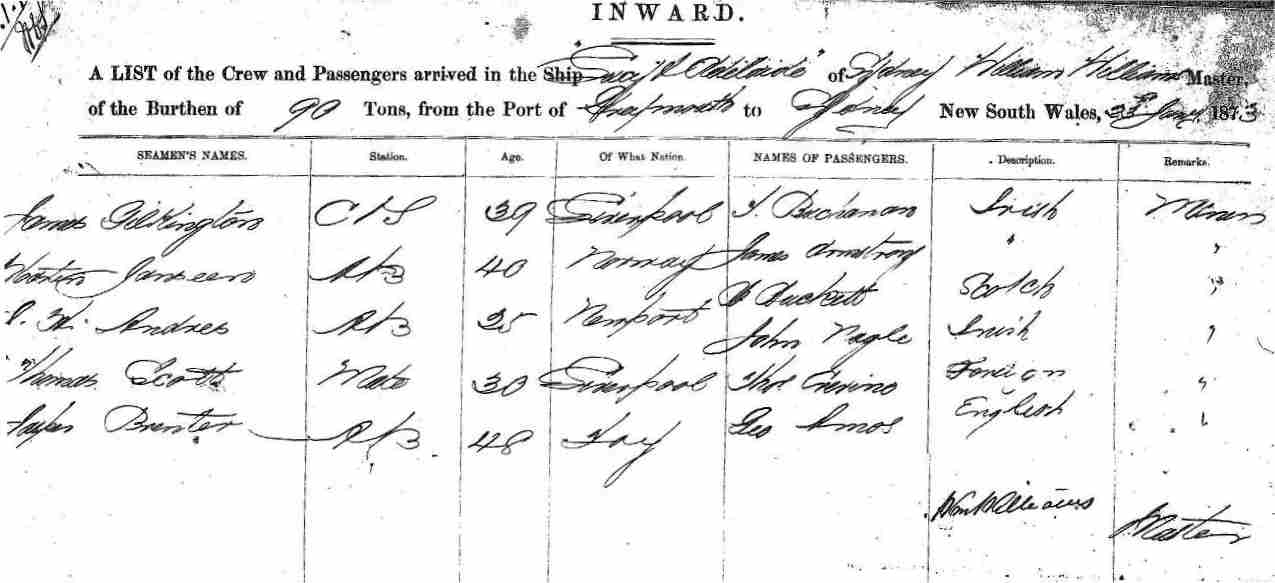 INWARD.
A LIST of the Crew and Passengers arrived in the Ship " Adelaide" of Sydney William Williams Master,
of the Burthen of 90 Tons, from the Port of to Sydney New South Wales, Jany 1873
SEAMEN'S NAMES. Station. Age. Of What Nation. NAMES OF PASSENGERS. Description. Remarks.
James Gilkington 39 Liverpool T. Buchanan Irish Miners
Janseen AB 40 Norway James Armstrong " "
Andres AB 35 Newport D Duckett Scotch "
Thomas Scott Mate 30 Liverpool John Nagle Irish "
Brenter AB 48 Thos Foreign "
Geo Amos English "
Wm Williams
Master